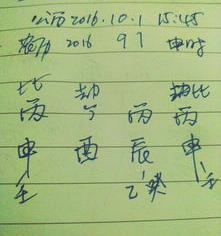 公历2016.10.1 15:45
农历 2016 9 1 申时
比 劫 比
丙 丁 丙 丙
申 酉 辰 申
壬 乙 癸 壬